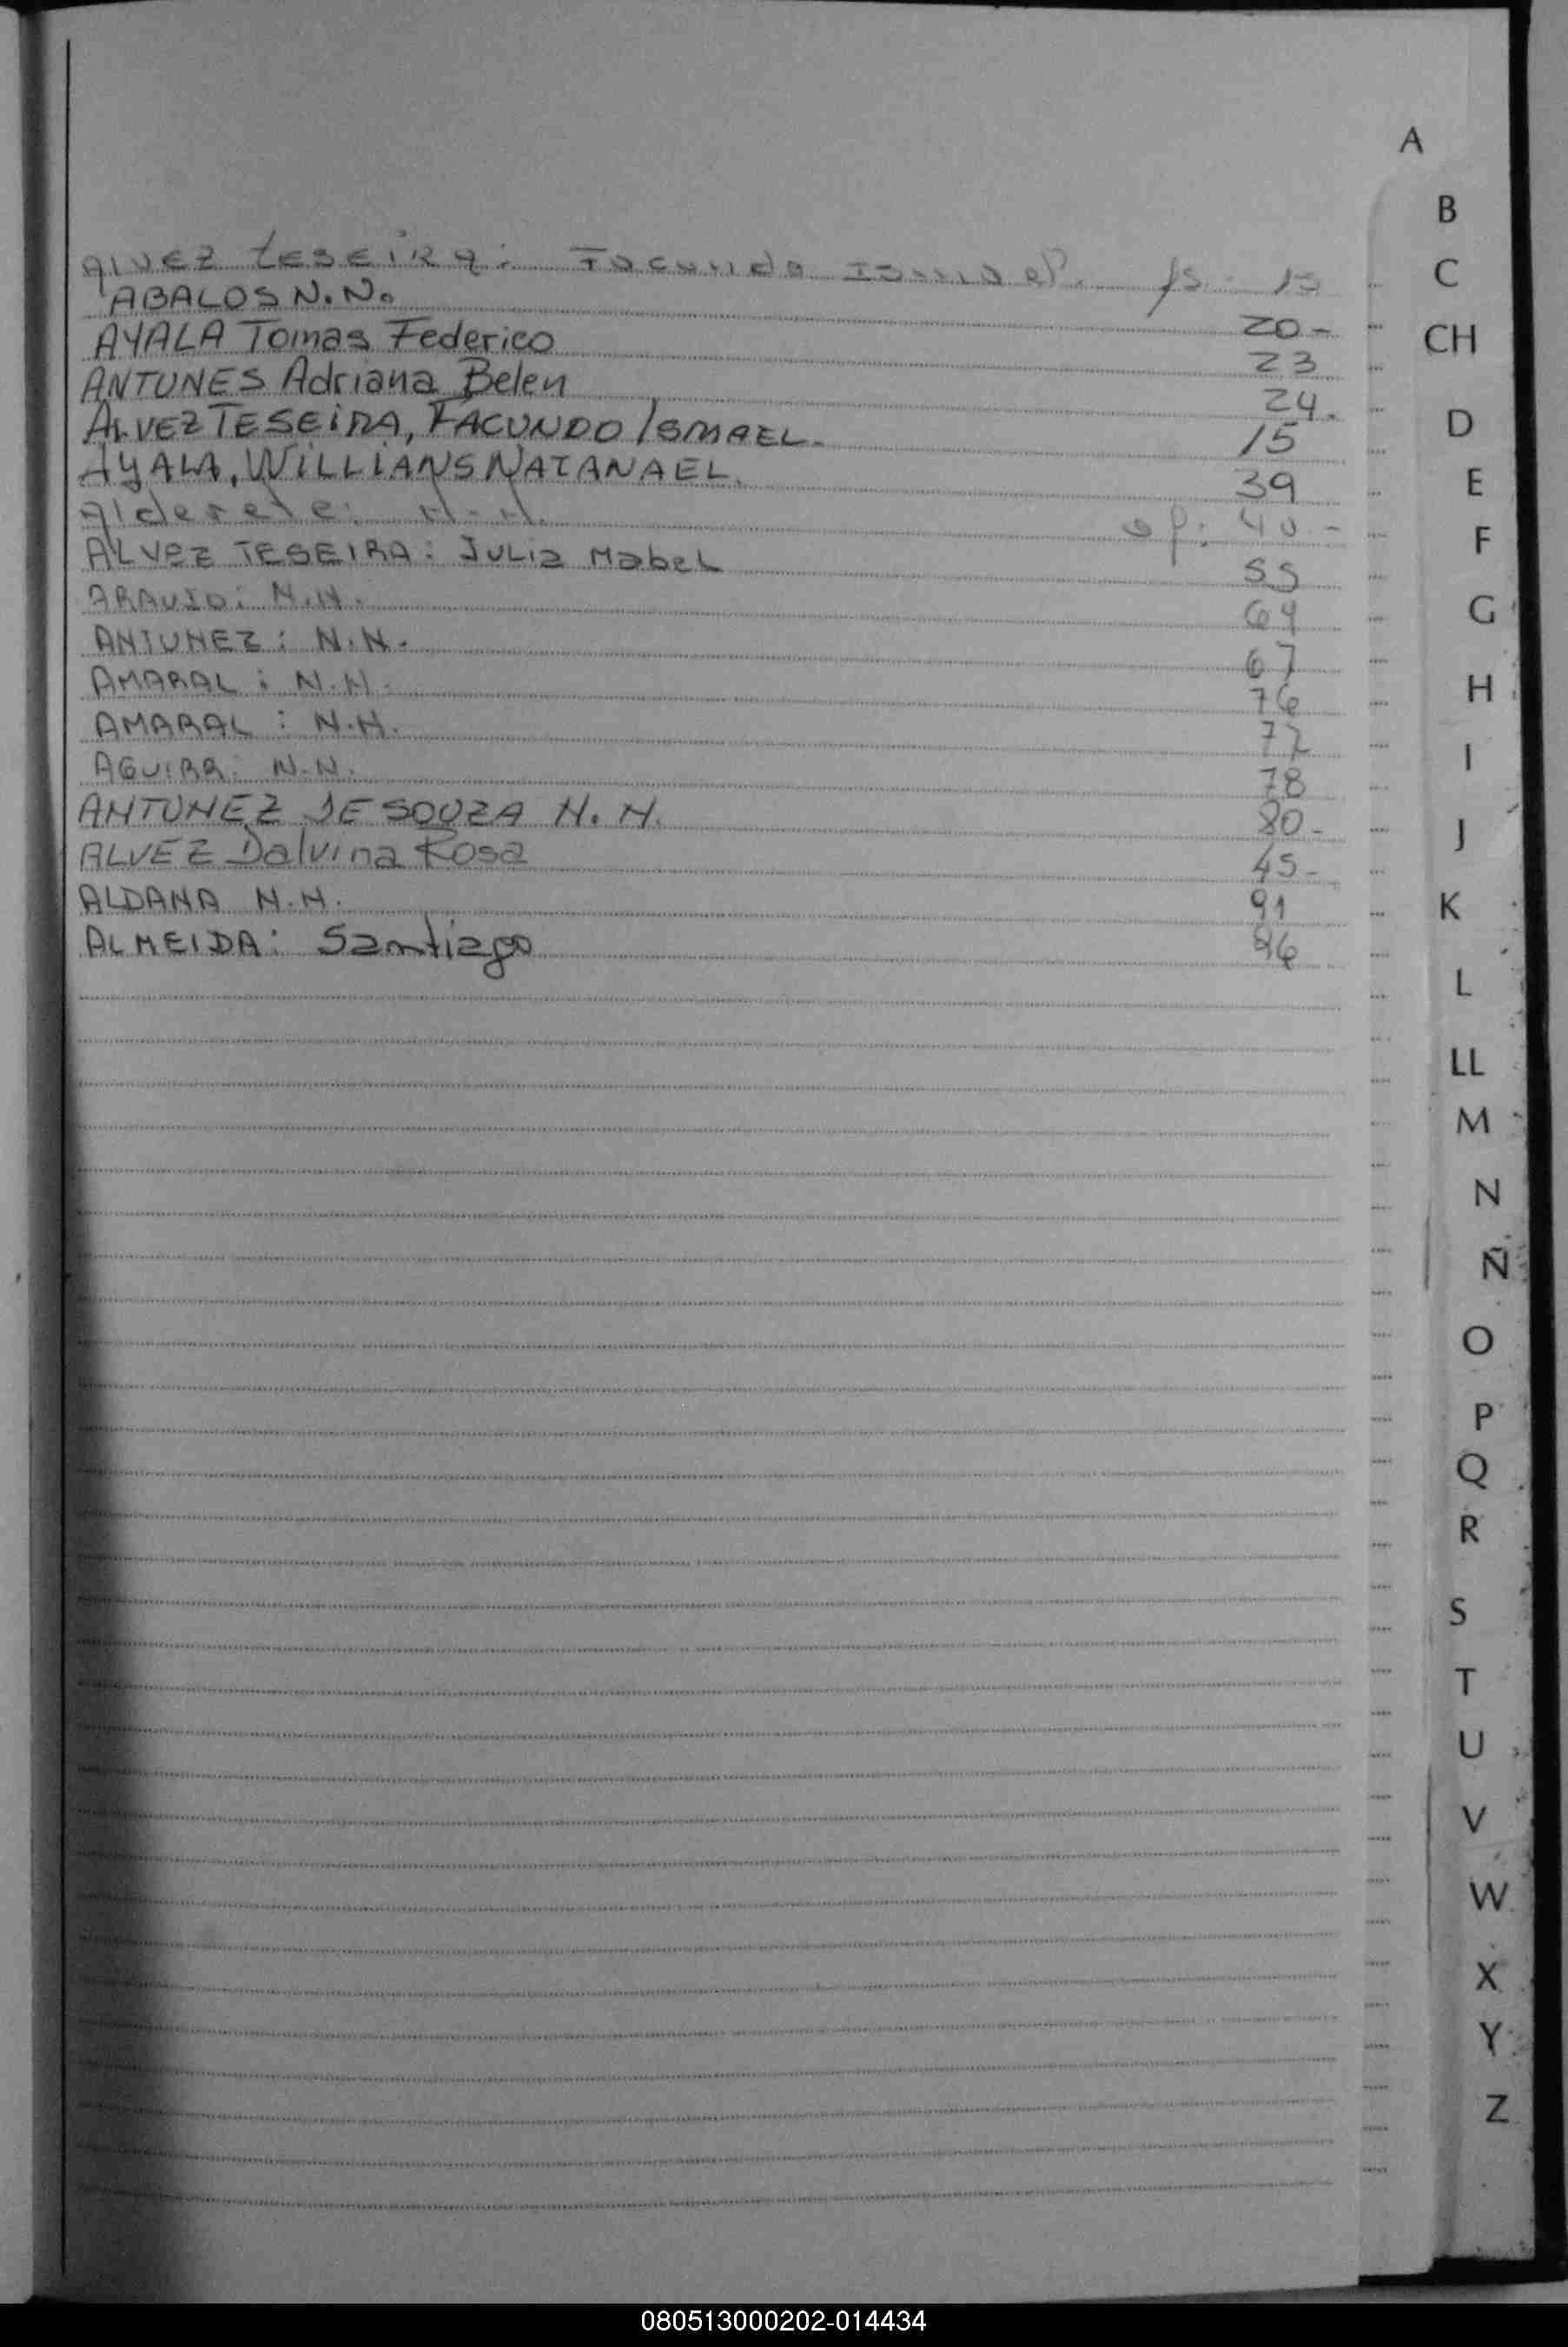 A
B
C
CH
D
E
F
G
H
I
J
K
L
LL
M
N
Ñ
O
P
Q
R
S
T
U
V
W
X
Y
Z
Alvez teseira: Facundo Ismael. fs. 15
ABALOS N.N. 20-
AYALA Tomas Federico 23
ANTUNES Adriana Belen 24.
ALVEZ TESEiRA, FACUNDO ISMAEL. 15
AYALA, WILLIANS NATANAEL. 39
Alderete: N.N. 40.-
ALVEZ TESEIRA: JULia MabeL 55
ARAUJO: N.N. 64
ANTUNEZ: N.N. 67
AMARAL: N.N. 76
AMARAL: N.N. 77
AGUIRR: N.N. 78
ANTUNEZ DE SOUZA N.N. 80-
ALVEZ Dalvina Rosa 45-
ALDANA N.N. 91
ALMEIDA: Santiago 96
080513000202-014434